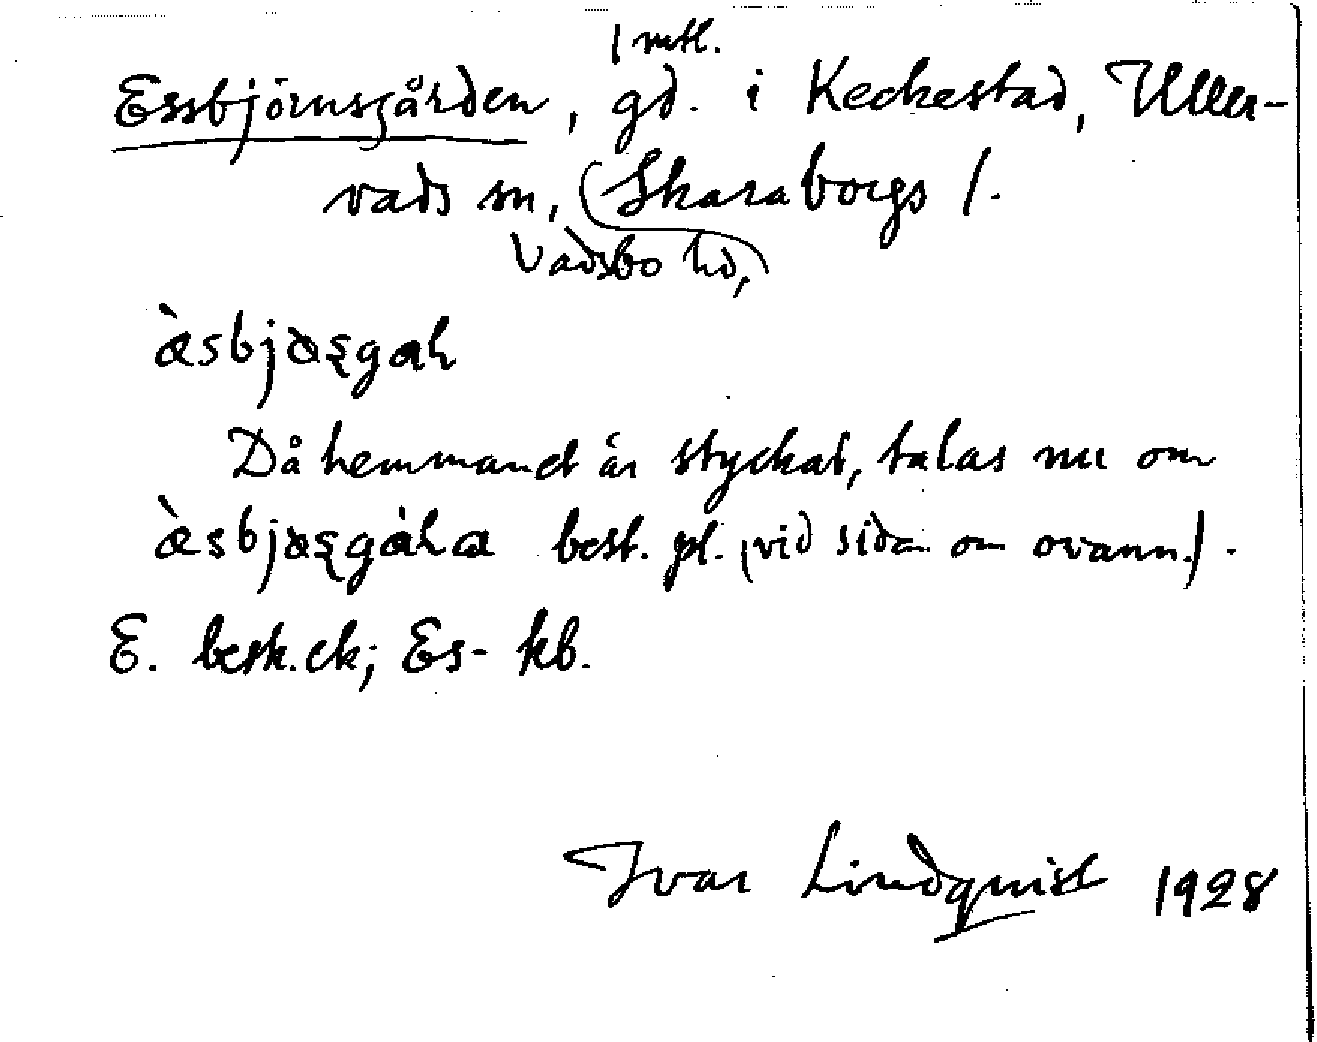 1 mtl.
Essbjörnsgården, gd. i Keckestad, Uller-
vads sn, (Skaraborgs l.
Vadsbo hd,)
Då hemmanet är styckat, talas nu om
best. pl. (vid sidan om ovann.).
E. besk. ek; Es- kb.
Ivar Lindquist 1928